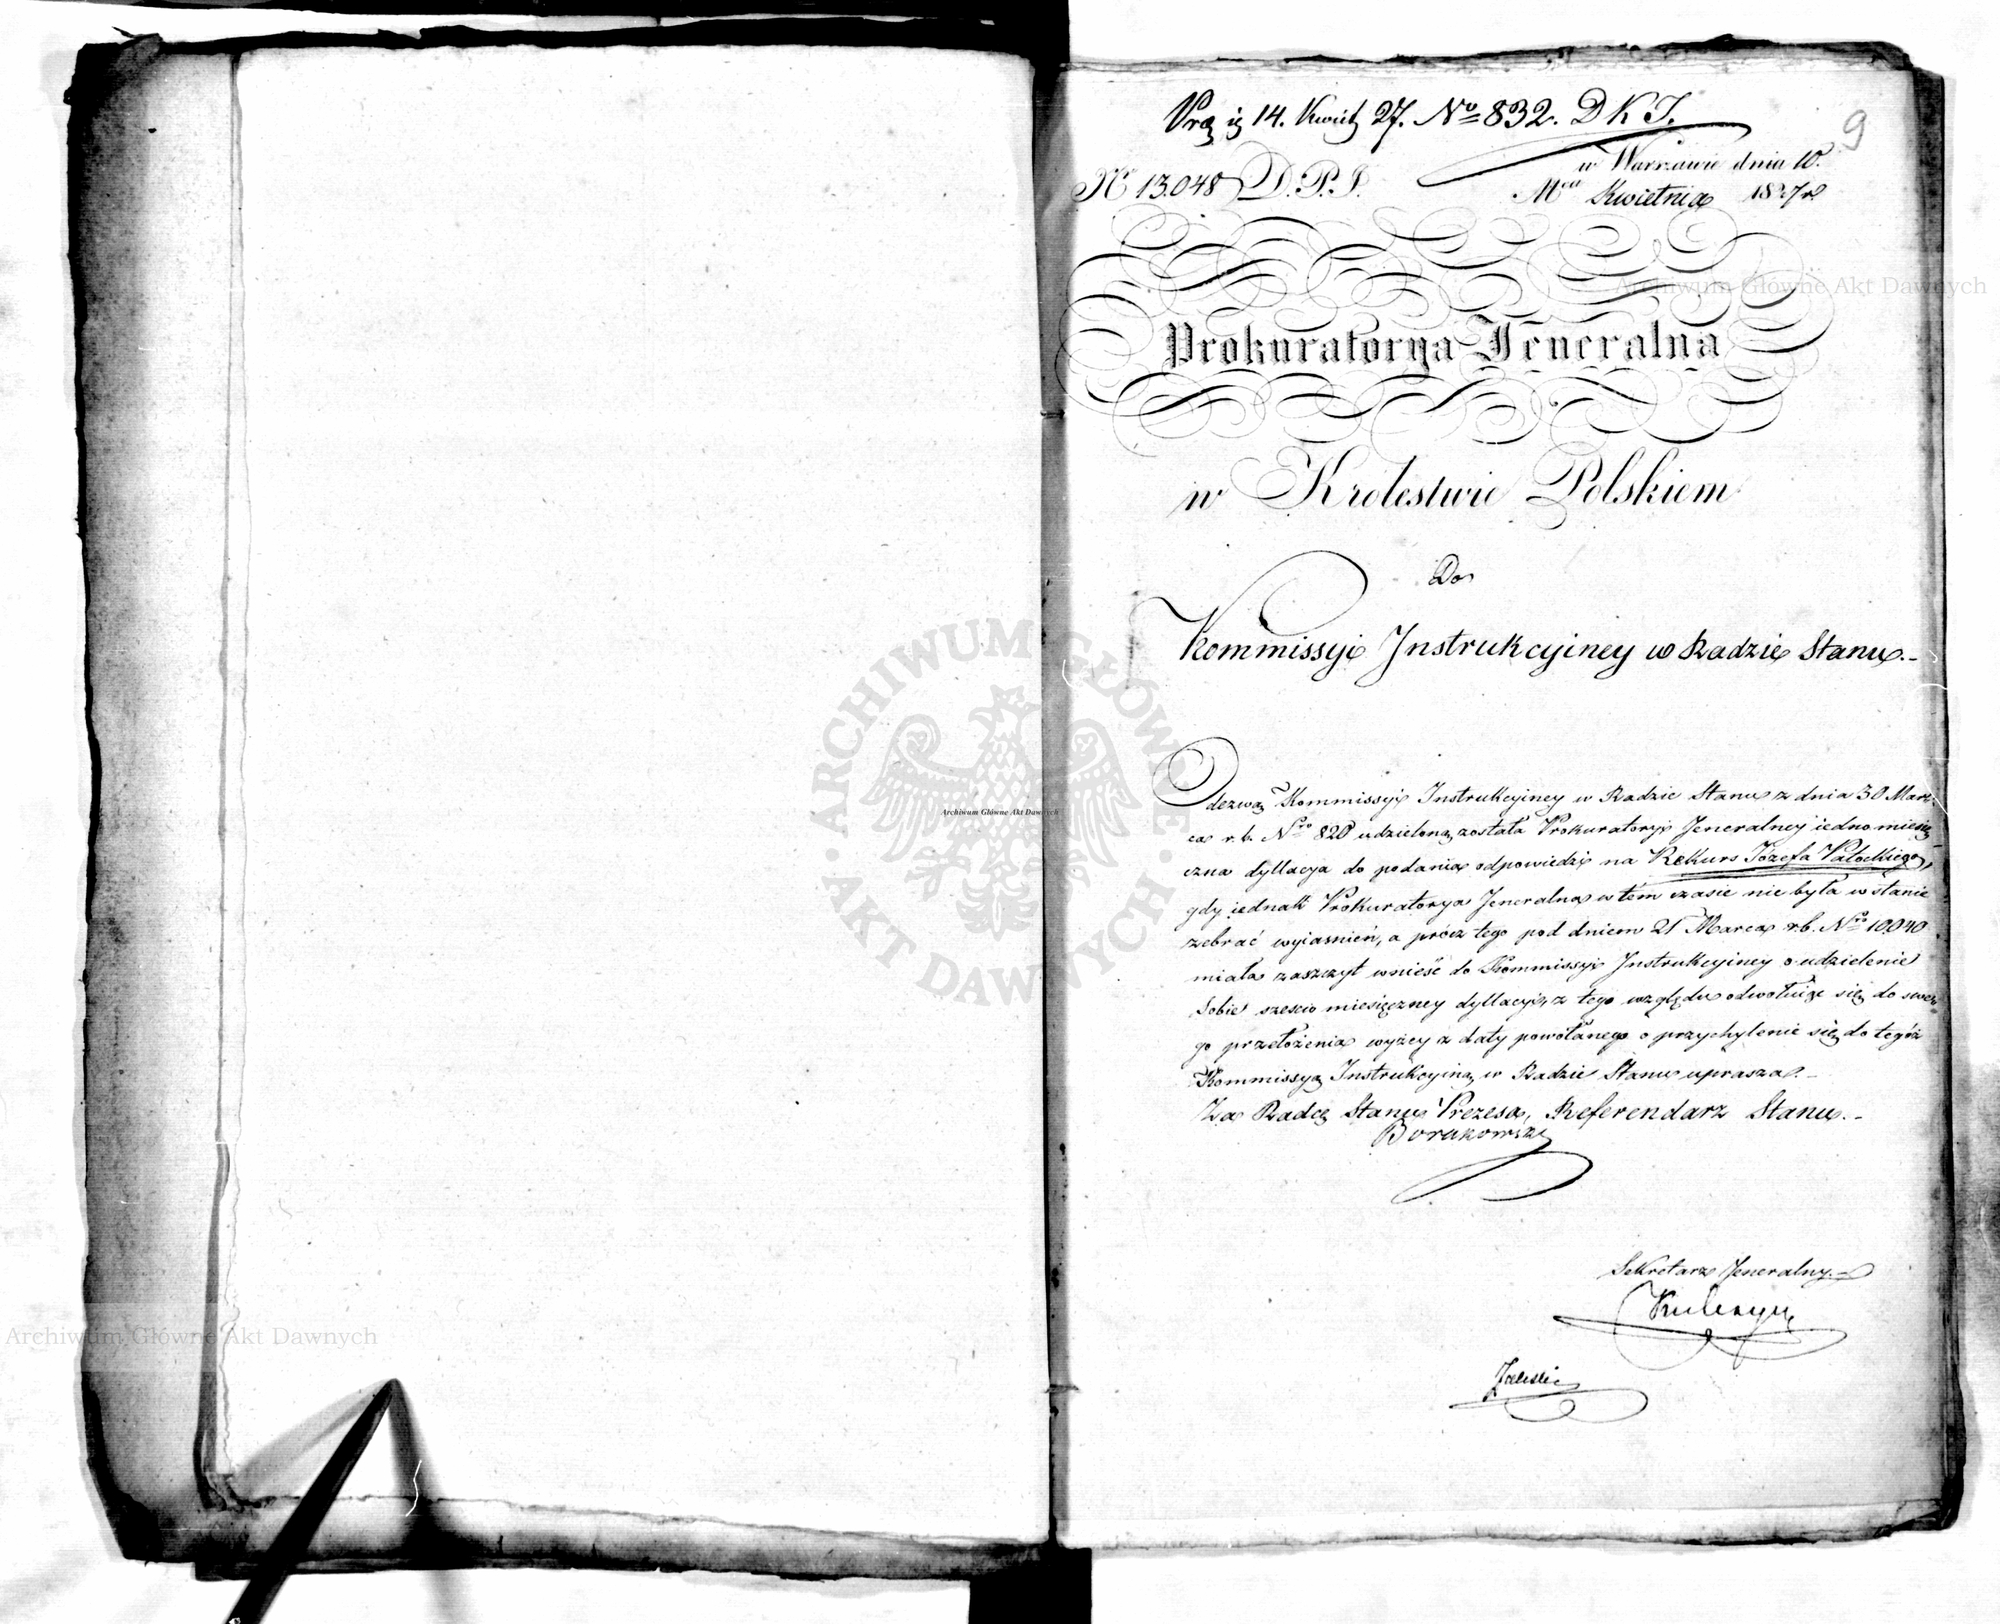 14. Kwiet 27. No 832. D K I.
9
No 13.048 D. P. J.
w Warszawie dnia 10.
Mca Kwietnia 1827 r.
Prokuratorya Jeneralna
w Królestwie Polskiem
Do
Kommissyi Instrukcyiney w Radzie Stanu.-
Odezwą Kommissyi Instrukcyiney w Radzie Stanu z dnia 30 Mar-
ca r. b. Nro 820 udzieloną została Prokuratoryi Jeneralney iedno miesię-
czna dyllacya do podania odpowiedzi na Rekurs Józefa Patockiego,
gdy iednak Prokuratorya Jeneralna w tém czasie nie była w stanie
zebrać wyiasnień, a prócz tego pod dniem 21 Marca r.b. Nro 10040
miała zaszczyt wnieść do Kommissyi Instrukcyiney o udzielenie
sobie szescio miesięczney dyllacyi, z tego względu odwołuiąc się do swe-
go przełożenia wyżey z daty powołanego o przychylenie się do tegóż
Kommissyą Instrukcyiną w Radzie Stanu uprasza.-
Za Radcę Stanu Prezesa, Referendarz Stanu.-
Sekretarz Jeneralny.-
Zaleski
Archiwum Główne Akt Dawnych
Archiwum Główne Akt Dawnych
Archiwum Główne Akt Dawnych
ARCHIWUM GŁÓWNE · AKT DAWNYCH ·